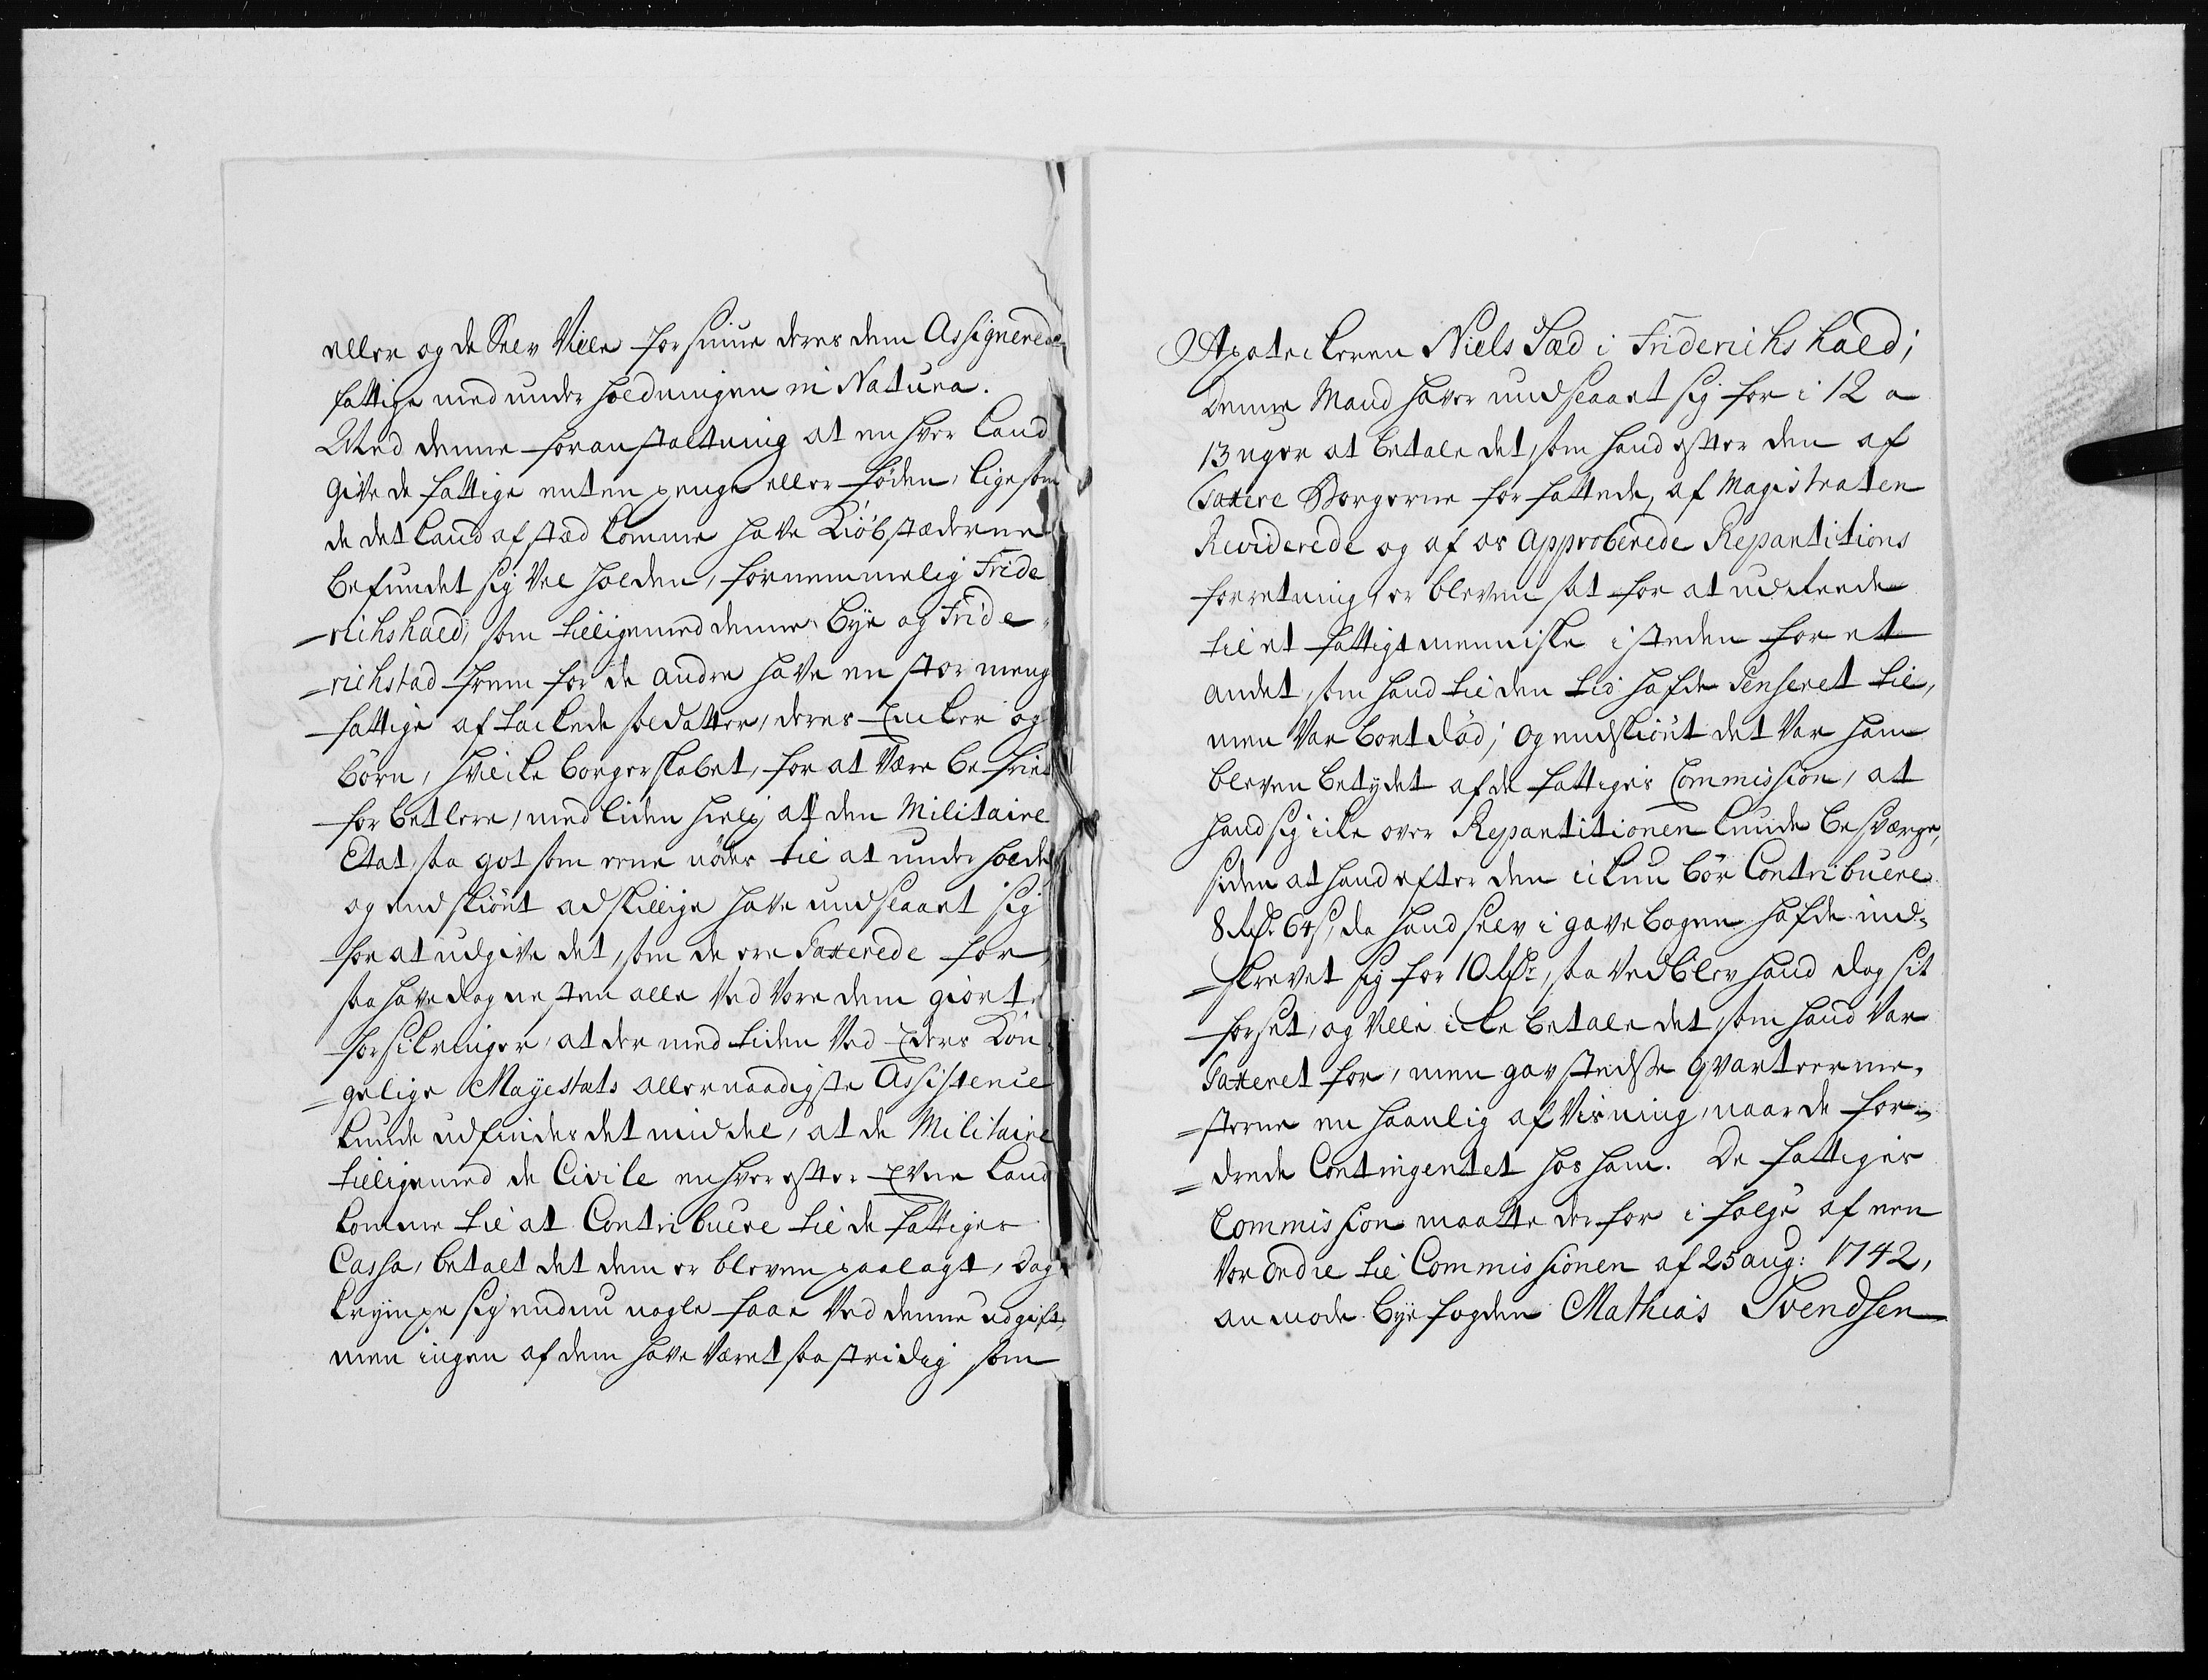 eller og de Selv Ville forsiune deres dem Assignerede
fattige med underholdningen in Natura.
Med denne foranstaltning at enhver Kand
give de fattige enten penge eller föden, ligesom
de det Kand afsted komme have Kiöbstæderne
befundet sig Vel holden, fornemmelig Fride
-richshald, som tilligemed denne Bye og Fride
-richstad frem for de andre have en stor meng
fattige aftackede soldatter, deres Encker og
börn, hvilcke borgerskabet, for at Være befriet
for betlere, med liden hielp af den Militaire
Etat, saa got som ene nödes til at underholde,
og endskiönt adskillige have undslaaet sig
for at udgive det, som de ere Taxerede for,
saa have dog nesten alle Ved Vore dem giorte
forsikringer, at der med tiden Ved Eders Kon-
=gelige Mayestæts allernaadigste Assistence
kunde udfindes det middel, at de Militaire
tilligemed de Civile enhver efter Evne Kand
komme til at Contribuere til de fattiges
Cassa, betalt det dem er bleven paalagt, Dog
krympe sig endnu nogle faae Ved denne udgift,
men ingen af dem have Været saa stridig som
Apoteckeren Niels Sæd i Friderichshald;
Denne Mand haver undslaaet sig for i 12 a
13 uger at betale det, som hand efter den af
Taxere Borgerne forfattede, af Magistraten
Reviderede og af os Approberede Repartitions
forretning, er bleven sat for at udreede
til et fattigt menniske i steden for et
andet, som hand til den tid hafde Penseret til,
men Var bortdöd; Og endskiönt det Var ham
bleven betydet af de fattiges Commission, at
hand sig icke over Repartitionen kunde besværge,
siden at hand efter den ickun bör Contribuere
8 Rdr 64 s, da hand selv i gavebogen hafde ind-
=skrevet sig for 10 Rdr, saa Vedblev hand dog sit
forset, og Ville icke betale det, som hand Var
Taxeret for, men gav stedse qvarteerme-
=sterne en haanlig afVisning, naar de for-
=drede Contingentet hos ham. De fattiges
Commission maatte derfor i fölge af een
Vor Ordre til Commissionen af 25 aug: 1742,
anmode byefogden Mathias Svendsen